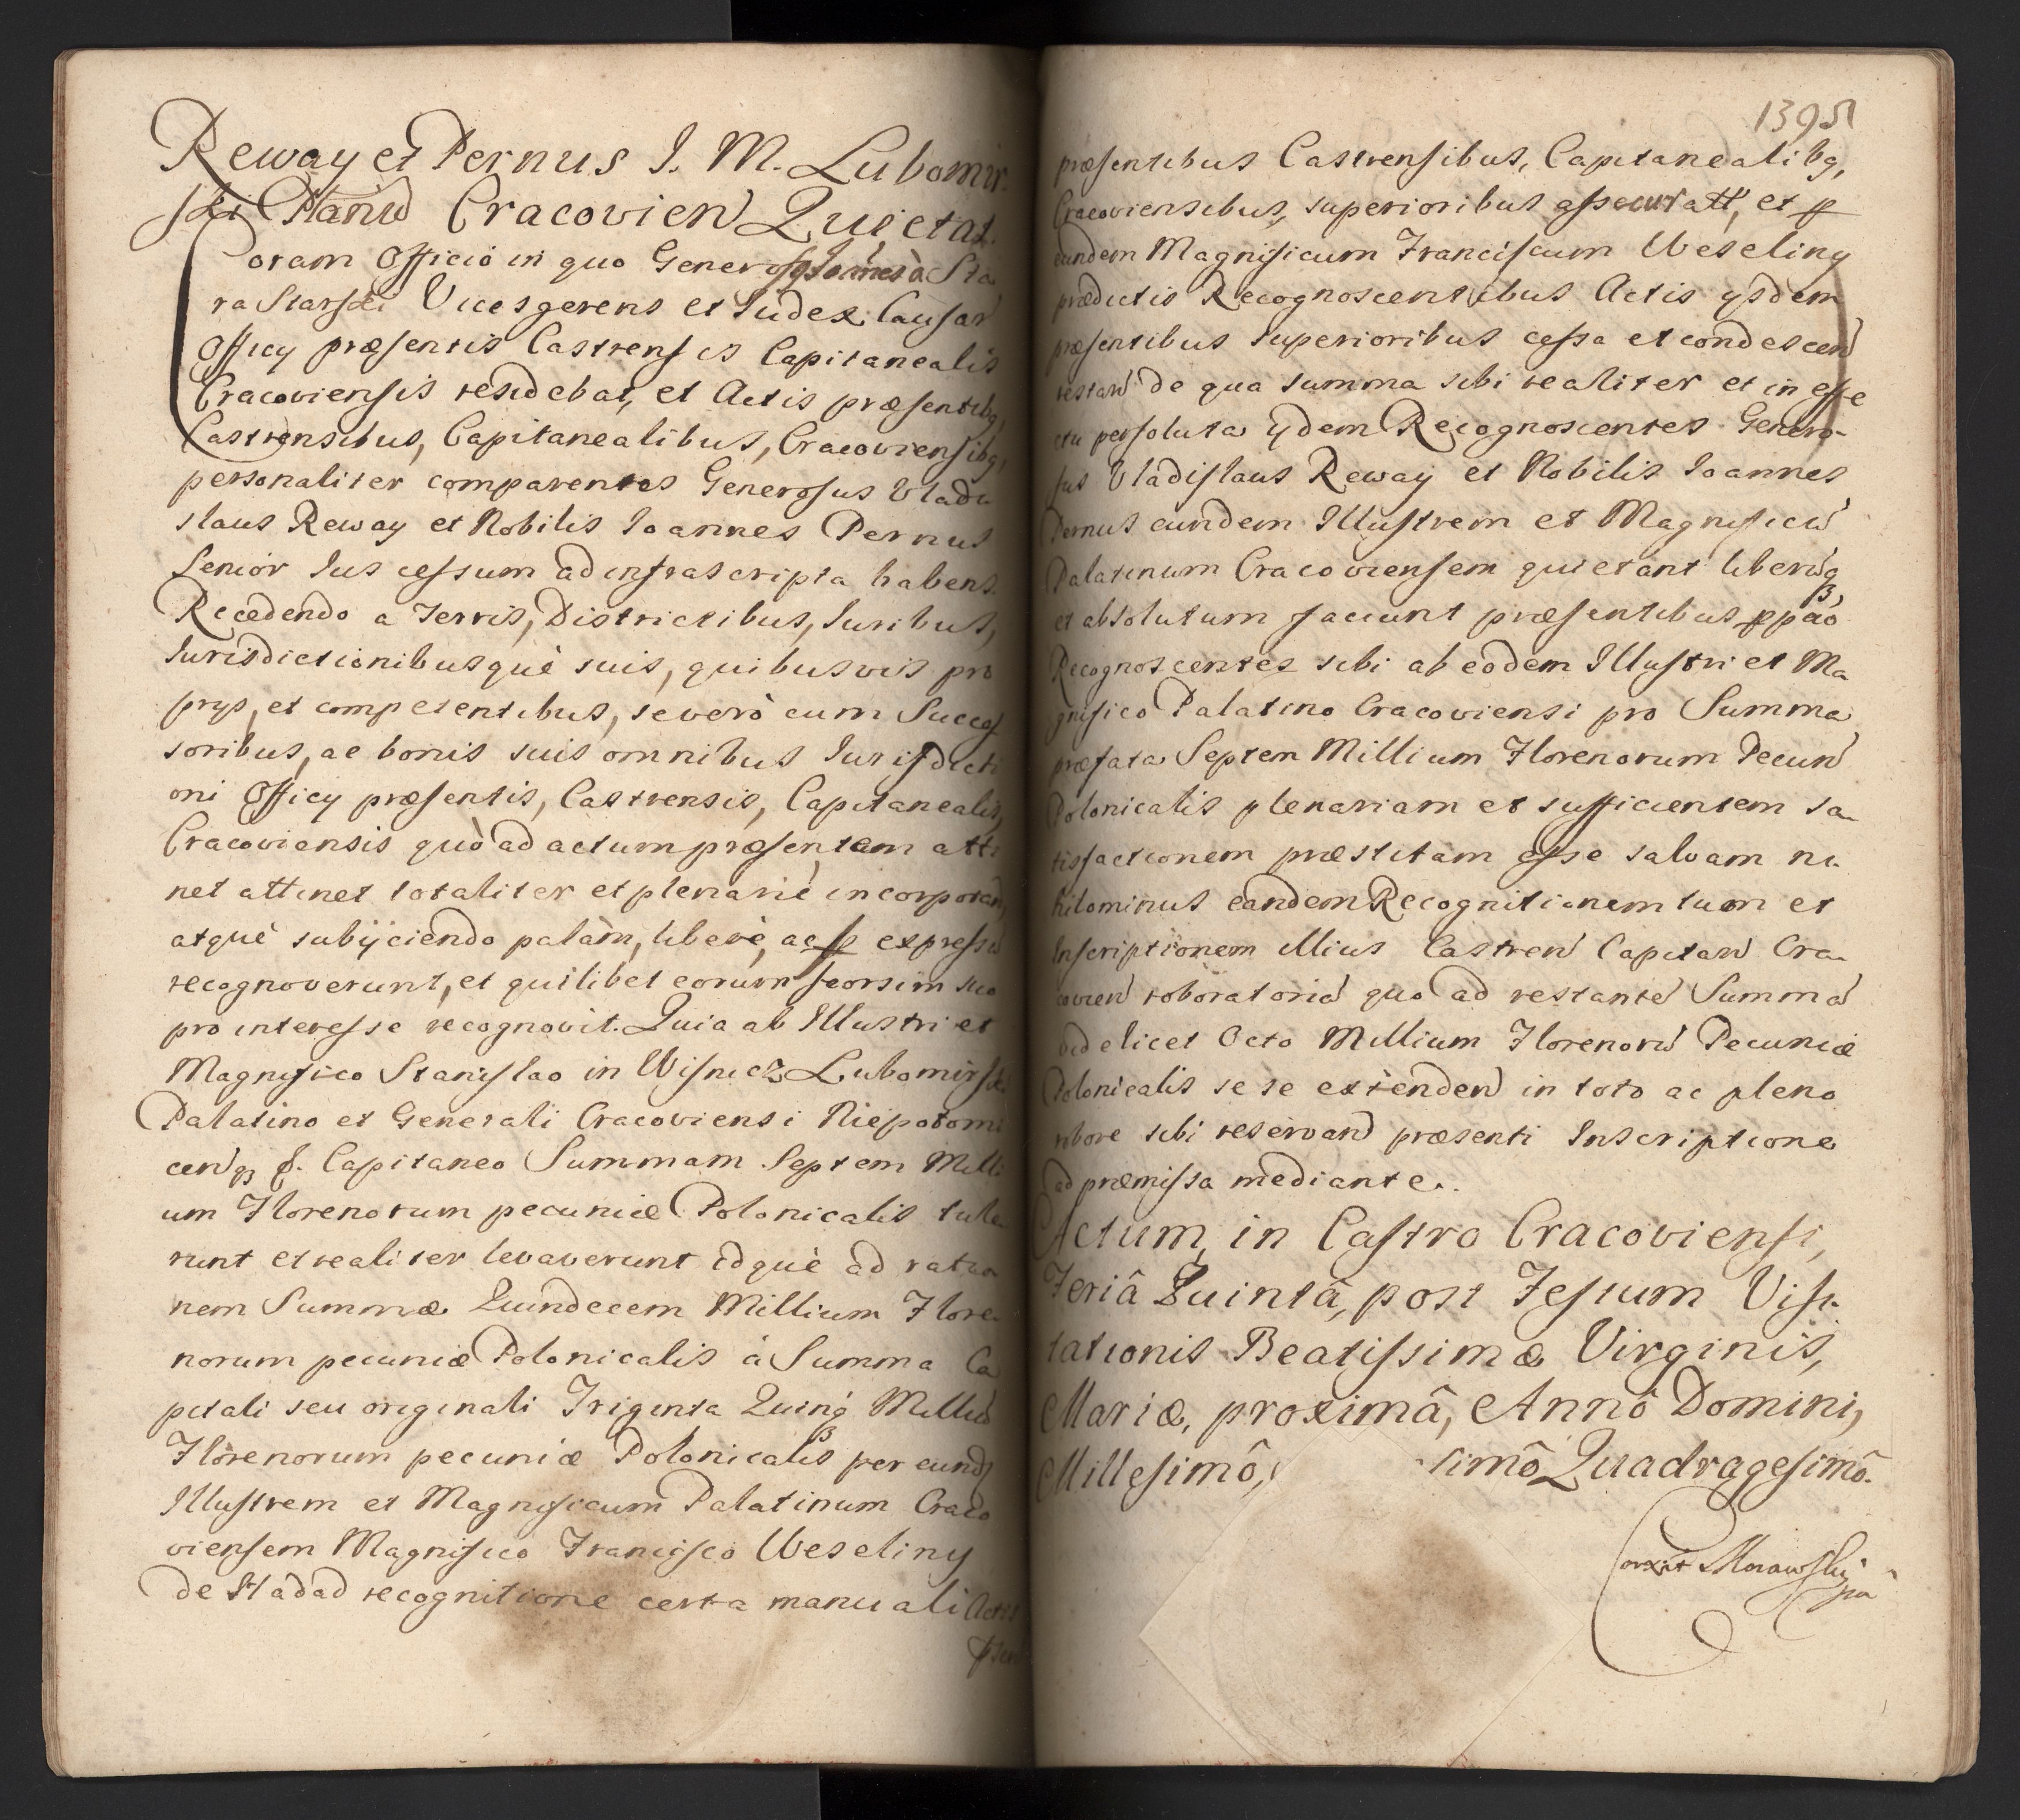 Reway et Pernus I. M. Lubomir
ski Płanũ Cracovien Quietat.
Coram Officio in quo Generosq Ioannes à Sta
ra Starski Vicesgerens et Iudex Causar
Officy præsentis Castrensis Capitanealis
Cracoviensis residebat, et Actis præsentibq,
Castrensibus, Capitanealibus, Cracoviensibq,
personaliter comparentes Generosus Vladi
slaus Reway et Nobilis Ioannes Pernus
Senior Ius cessum ad infrascripta habens.
Recedendo a Terris, Districtibus, Iuribus,
Iurisdictionibusquè suis, quibusvis pro
prys, et competentibus, severò cum Succes
soribus, ac bonis suis omnibus Iurisdicti
oni Officy præsentis, Castrensis, Capitanealis,
Cracoviensis quò ad actum præsentem atti
net attinet totaliter et plenariè incorporan
atquè subijciendo palàm, liberè, ac p expressè
recognoverunt, et quilibet eorum seorsim suo
pro interesse recognovit. Quia ab Illustri et
Magnifico Stanislao in Wisnicz Lubomirski
Palatino et Generali Cracoviensi Niepołomi
cenq3 &. Capitaneo Summam Septem Milli
um Florenorum pecuniæ Polonicalis tule
runt et realiter levaverunt idquè ad ratio
nem Summæ Quindecem Millium Flore
norum pecuniæ Polonicalis à Summa Ca
pitali seu originali Triginta Quinq3 Milliũ
Florenorum pecuniæ Polonicalis per eund
Illustrem et Magnificum Palatinum Craco
viensem Magnifico Francisco Weseliny
de Hadad recognitione certa manuali Actis
psen
1395
præsentibus Castrensibus, Capitanealibq,
Cracoviensibus, superioribus assecuratt, et p
eundem Magnificum Franciscum Weseliny
prædictis Recognoscentibus Actis ysdem
præsentibus superioribus cessa et condescen
restan de qua summa sibi realiter et in effe
ctu persoluta ijdem Recognoscentes Genero-
sus Vladislaus Reway et Nobilis Ioannes
Pernus eundem Illustrem et Magnificũ
Palatinum Cracoviensem quietant liberũq3
et absolutum faciunt præsentibus ppao
Recognoscentes sibi ab eodem Illustri et Ma
gnifico Palatino Cracoviensi pro Summa
præfata Septem Millium Florenorum Pecun
Polonicalis plenariam et sufficientem sa-
tisfactionem præstitam esse salvam ni-
hilominus eandem Recognitionem tum et
Inscriptionem illius Castren Capitan Cra-
covien roboratoria quo ad restante Summa
videlicet Octo Millium Florenorũ Pecuniæ
Polonicalis se se extenden in toto ac pleno
robore sibi reservand præsenti Inscriptione
ad præmissa mediante.
Actum, in Castro Cracoviensi,
Feriâ Quintâ, post Festum Visi-
tationis Beatissimæ Virginis,
Mariæ, proximâ, Annô Domini,
Millesimô, simô Quadragesimô.
Correxit Morawski